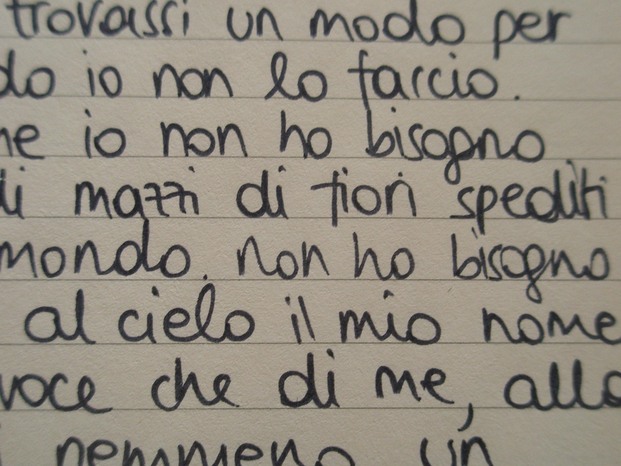 trovassi un modo per
do io non lo faccio.
he io non ho bisogno
di mazzi di fiori spediti
mondo. non ho bisogno
al cielo il mio nome
voce che di me, allo
nemmeno un